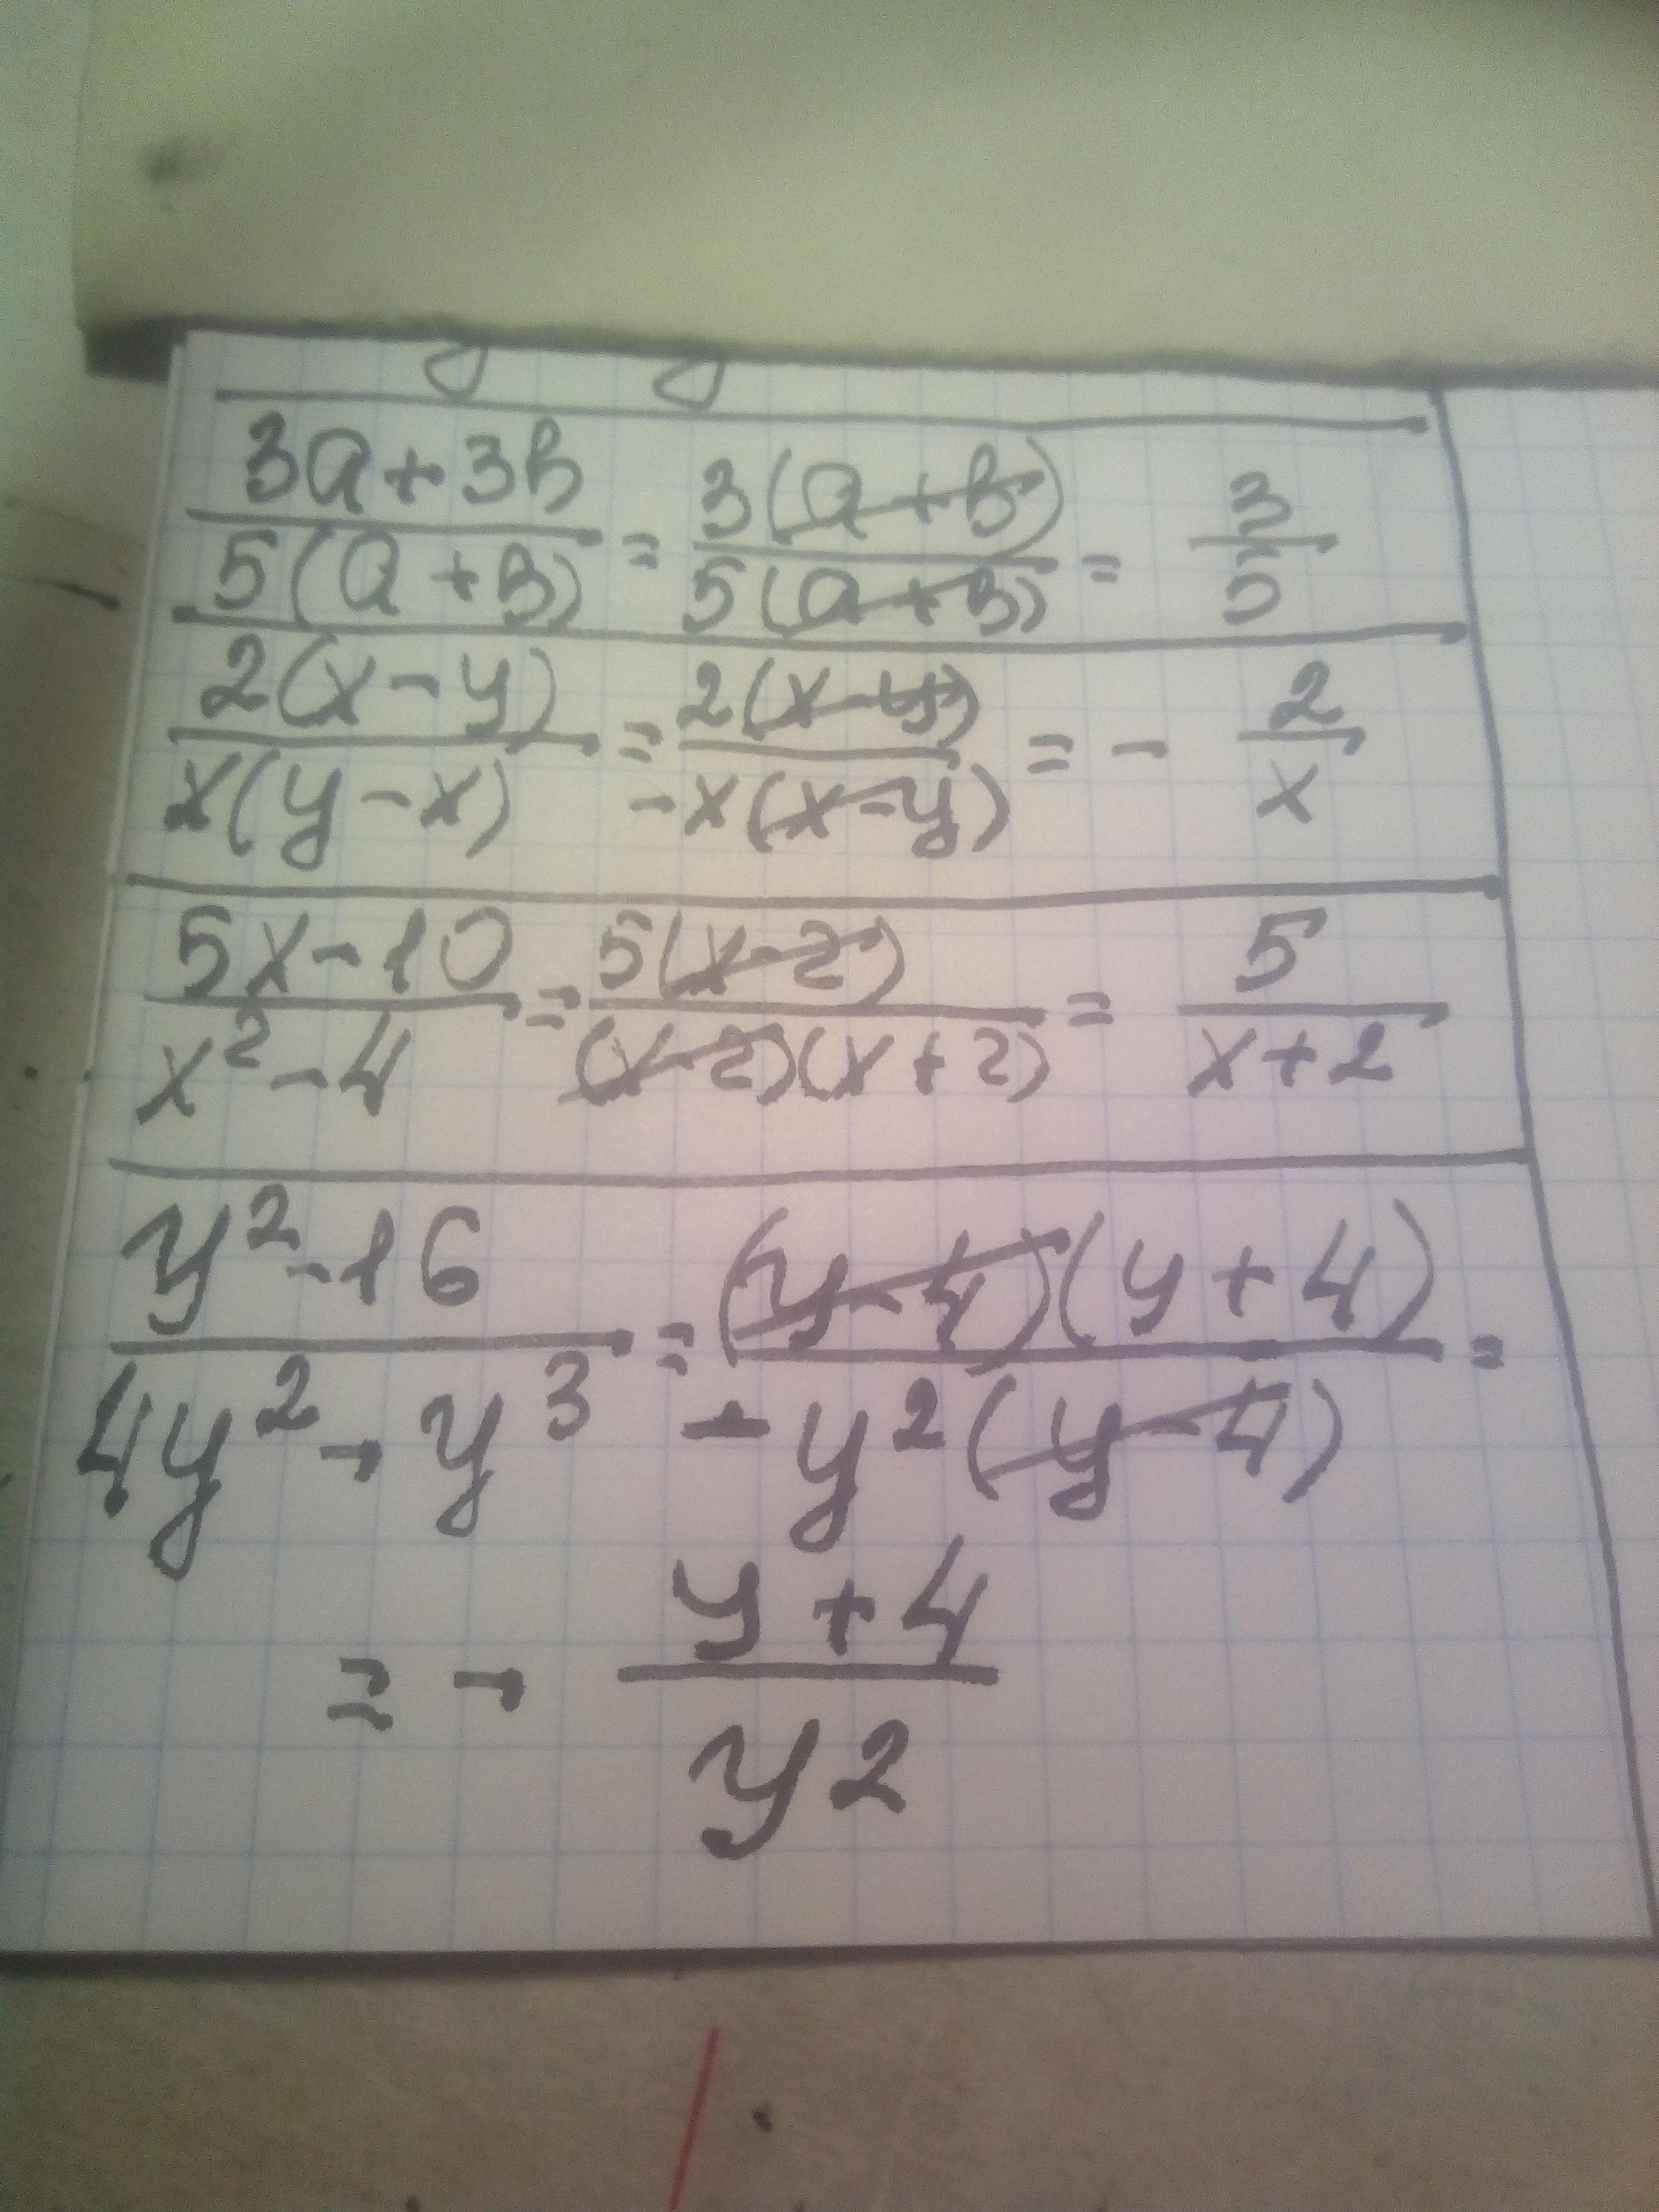 (3a+3b)/(5(a+b)) = (3(a+b))/(5(a+b)) = 3/5
(2(x-y))/(x(y-x)) = (2(x-y))/(-x(x-y)) = - 2/x
(5x-10)/(x²-4) = (5(x-2))/((x-2)(x+2)) = 5/(x+2)
(y²-16)/(4y²-y³) = ((y-4)(y+4))/(-y²(y-4)) =
= - (y+4)/(y2)